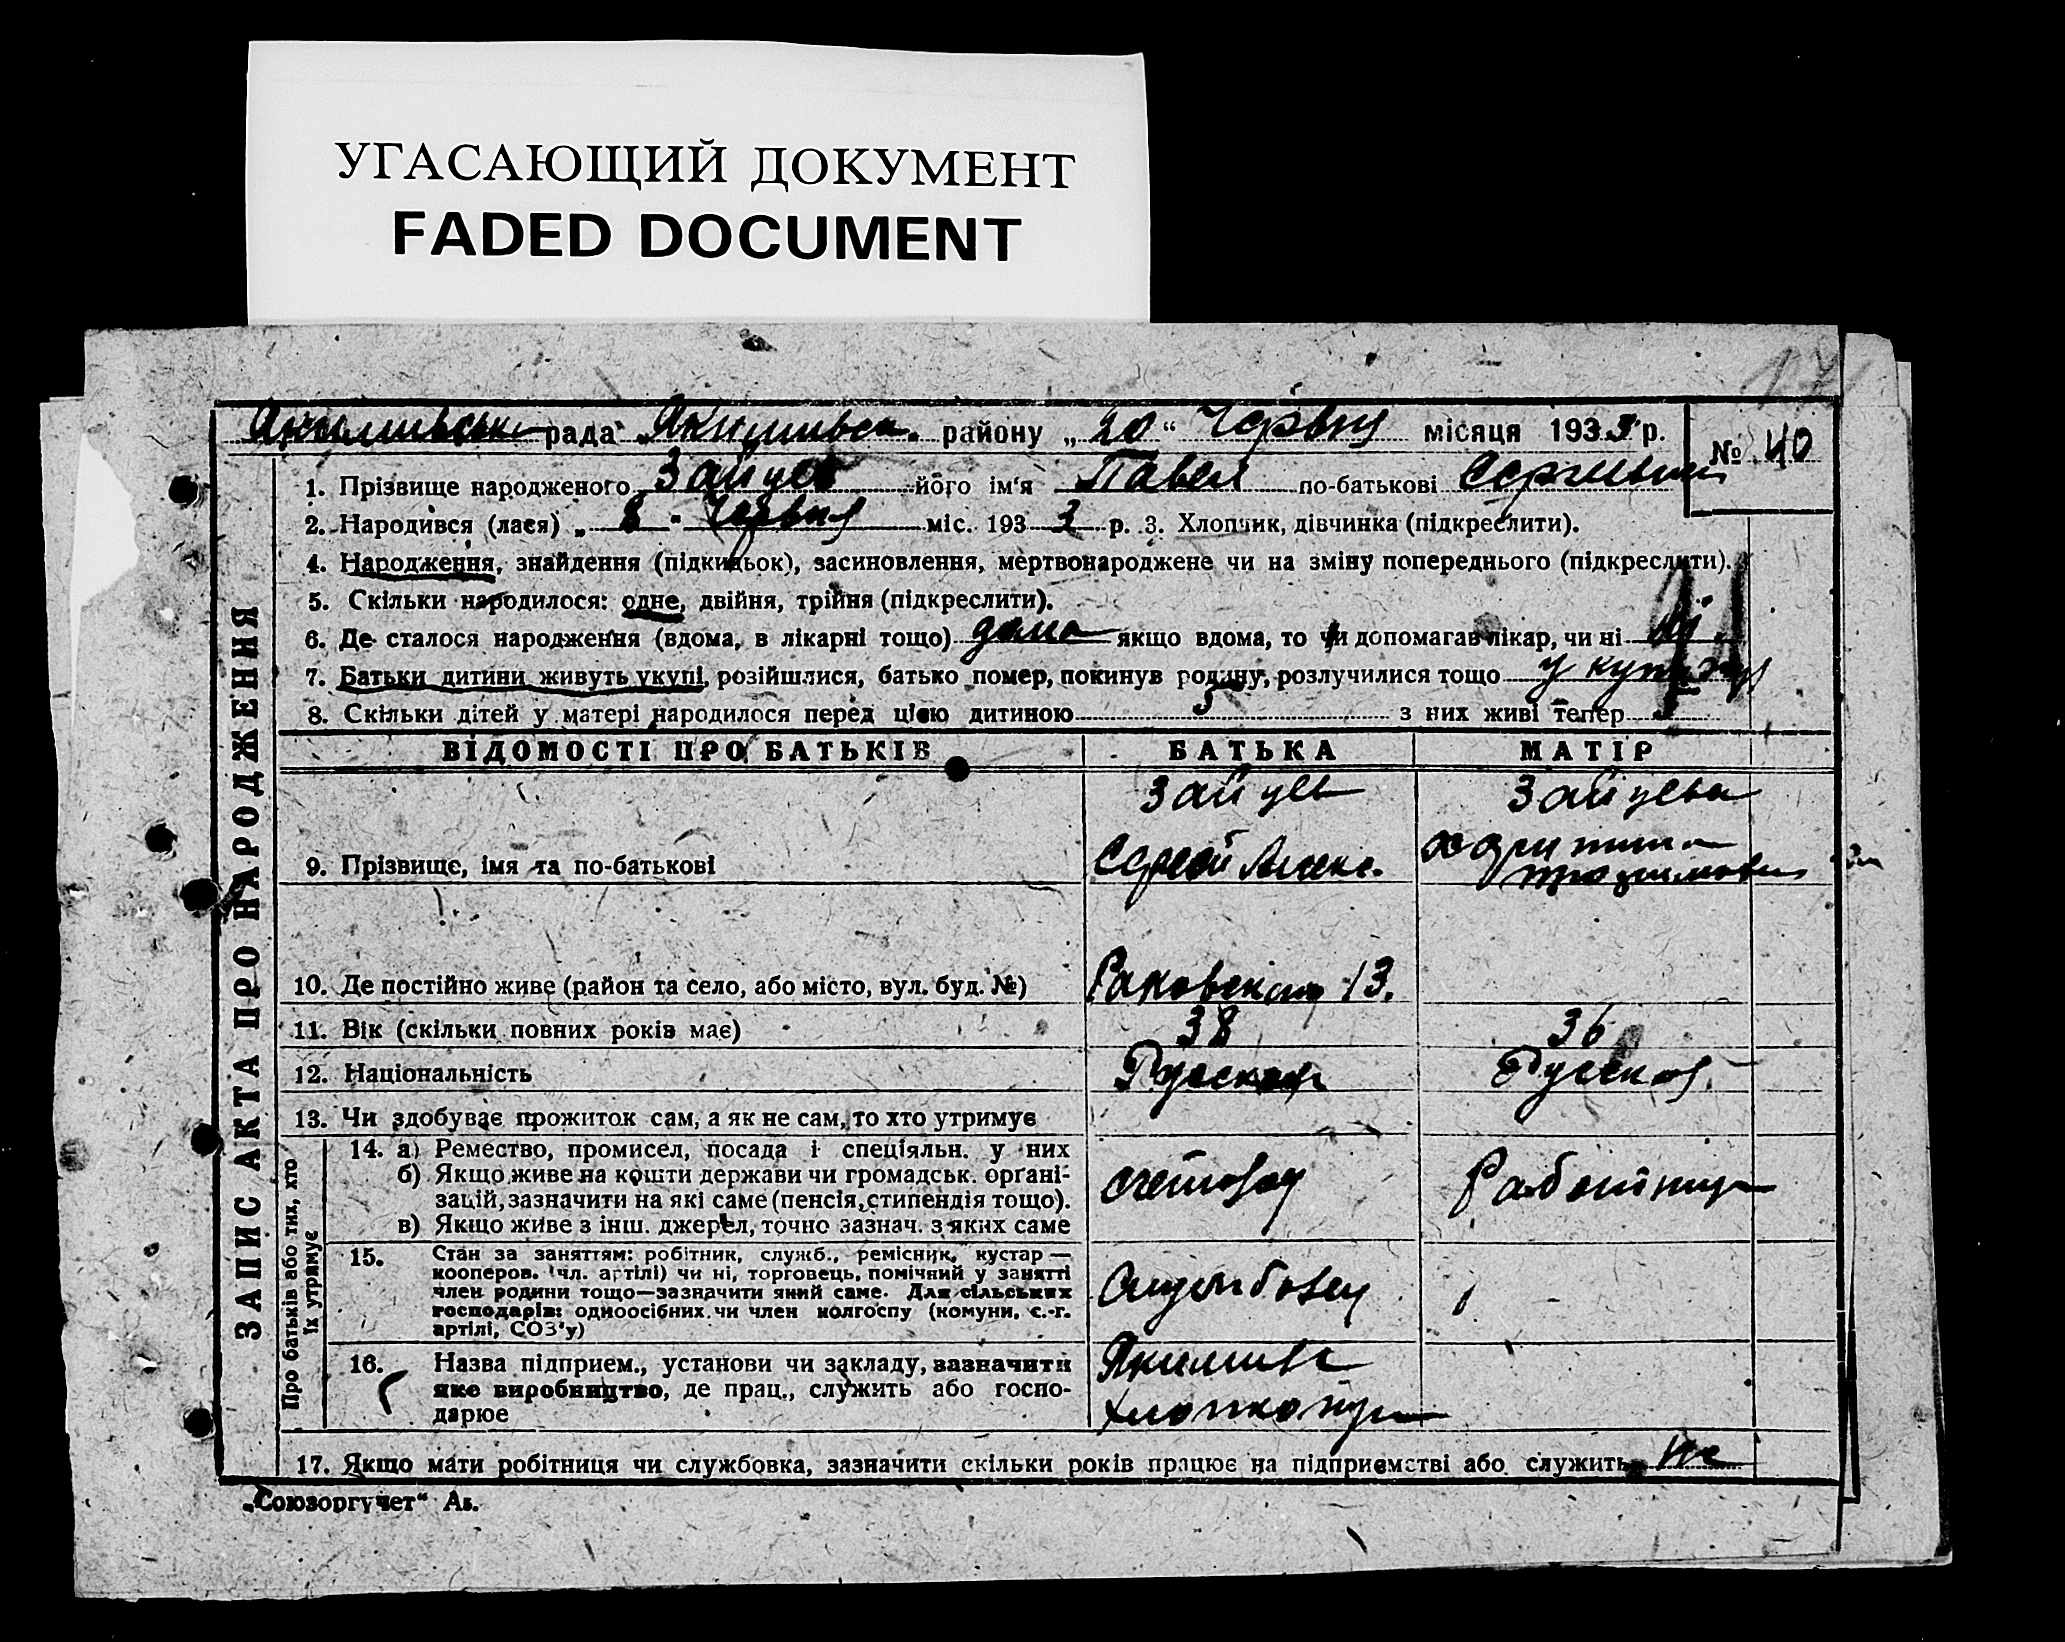 УГАСАЮЩИЙ ДОКУМЕНТ
FADED DOCUMENT
рада Якимивск. району „20“ Червня місяця 1933 р.
№ 40
1. Прізвище народженого Зайцев його ім'я Павел по-батькові
2. Народився (лася) „8" Червня міс. 1933 р. 3. Хлопчик, дівчинка (підкреслити).
4. Народження, знайдення (підкидьок), засиновлення, мертвонароджене чи на зміну попереднього (підкреслити).
5. Скільки народилося: одне, двійня, трійня (підкреслити).
6. Де сталося народження (вдома, в лікарні тощо) дома якщо вдома, то чи допомагав лікар, чи ні
7. Батьки дитини живуть укупі, розійшлися, батько помер, покинув родину, розлучилися тощо
8. Скільки дітей у матері народилося перед цією дитиною 5 з них живі тепер
ЗАПИС АКТА ПРО НАРОДЖЕННЯ
ВІДОМОСТІ ПРО БАТЬКІВ БАТЬКА МАТІР
Зайцев Зайцева
9. Прізвище, імя та по-батькові Сергей Алекс.
10. Де постійно живе (район та село, або місто, вул. буд. №) 13.
11. Вік (скільки повних років має) 38 36
12. Національність
13. Чи здобуває прожиток сам, а як не сам, то хто утримує
Про батьків або тих, хто
їх утримує
14. а) Ремество, промисел, посада і спеціяльн. у них
б) Якщо живе на кошти держави чи громадськ. організацій, зазначити на які саме (пенсія, стипендія тощо).
в) Якщо живе з інш. джерел, точно зазнач. з яких саме
счетовод Работница
15. Стан за заняттям: робітник, служб., ремісник, кустар —
кооперов. (чл. артілі) чи ні, торговець, помічний у занятті
член родини тощо—зазначити який саме. Для сільських
господарів: одноосібних чи член колгоспу (комуни, с.-г.
артілі, СОЗ'у)
16. Назва підприєм., установи чи закладу, зазначити
яке виробництво, де прац., служить або госпо-
дарює
17. Якщо мати робітниця чи службовка, зазначити скільки років працює на підприємстві або служить
„Союзоргучет“ Ак.